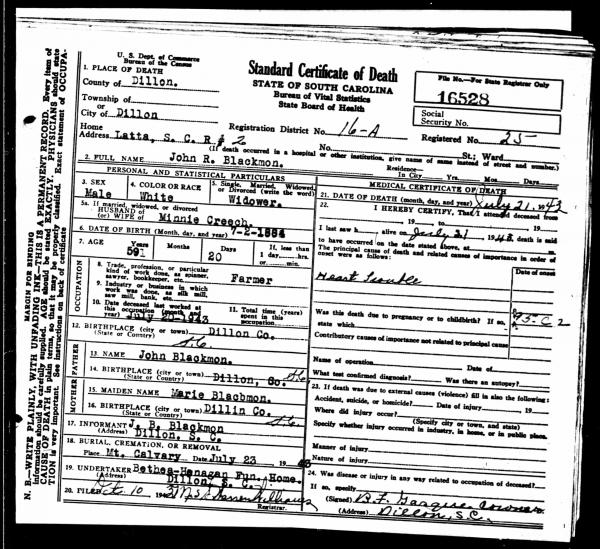 N. B.—WRITE PLAINLY, WITH UNFADING INK—THIS IS A PERMANENT RECORD. Every item of
information should be carefully supplied. AGE should be stated EXACTLY. PHYSICIANS should state
CAUSE OF DEATH in plain terms, so that it may be properly classified. Exact statement of OCCUPA-
TION is very important. See instructions on back of certificate
MARGIN FOR BINDING
U. S. Dept. of Commerce
Bureau of the Census
1. PLACE OF DEATH
County of Dillon.
Township of
or
City of Dillon
Home
Address Latta, S. C. R # 2
Standard Certificate of Death
STATE OF SOUTH CAROLINA
Bureau of Vital Statistics
State Board of Health
Registration District No. 16-A
File No.—For State Registrar Only
16528
Social
Security No.
Registered No. 25
No. St.; Ward
(If death occurred in a hospital or other institution, give name of same instead of street and number).
2. FULL NAME John R. Blackmon.
Residence—
In City Yrs. Mos. Days
PERSONAL AND STATISTICAL PARTICULARS
3. SEX
Male
4. COLOR OR RACE
White
5. Single, Married, Widowed,
or Divorced (write the word)
Widower.
5a. If married, widowed, or divorced
HUSBAND of
(or) WIFE of Minnie Creech.
6. DATE OF BIRTH (Month, day, and year) 7-2-1884
7. AGE Years 59 Months Days 20 If less than
1 day, hrs.
or min.
OCCUPATION
8. Trade, profession, or particular
kind of work done, as spinner,
sawyer, bookkeeper, etc. Farmer
9. Industry or business in which
work was done, as silk mill,
saw mill, bank, etc.
10. Date deceased last worked at
this occupation (month and
year) July 20-1943
11. Total time (years)
spent in this
occupation
12. BIRTHPLACE (city or town) Dillon Co.
(State or Country)
FATHER
13. NAME John Blackmon.
14. BIRTHPLACE (city or town) Dillon, Co.
(State or Country)
MOTHER
15. MAIDEN NAME Marie Blackmon.
16. BIRTHPLACE (city or town) Dillin Co.
(State or Country)
17. INFORMANT J. B. Blackmon
(Address) Dillon, S. C.
18. BURIAL, CREMATION, OR REMOVAL
Place Mt. Calvary Date July 23 19 43
19. UNDERTAKER Bethea-Henagan Fun. Home.
Dillon, S. C.
20. FILED Oct. 10 1943
Registrar.
MEDICAL CERTIFICATE OF DEATH
21. DATE OF DEATH (month, day, and year) July 21, 1943
22. I HEREBY CERTIFY, That I attended deceased from
19 to 19
I last saw h alive on July 21 1943, death is said
to have occurred on the date stated above, at m.
The principal cause of death and related causes of importance in order of
onset were as follows:
Date of onset
Heart Trouble
95-C 2
Was this death due to pregnancy or to childbirth? If so,
state which
Contributory causes of importance not related to principal cause
Name of operation Date of
What test confirmed diagnosis? Was there an autopsy?
23. If death was due to external causes (violence) fill in also the following:
Accident, suicide, or homicide? Date of injury 19
Where did injury occur?
(Specify city or town, and state)
Specify whether injury occurred in industry, in home, or in public place.
Manner of injury
Nature of injury
24. Was disease or injury in any way related to occupation of deceased?
If so, specify
(Signed) B. F. Gasque, coroner
(Address) Dillon, S.C.